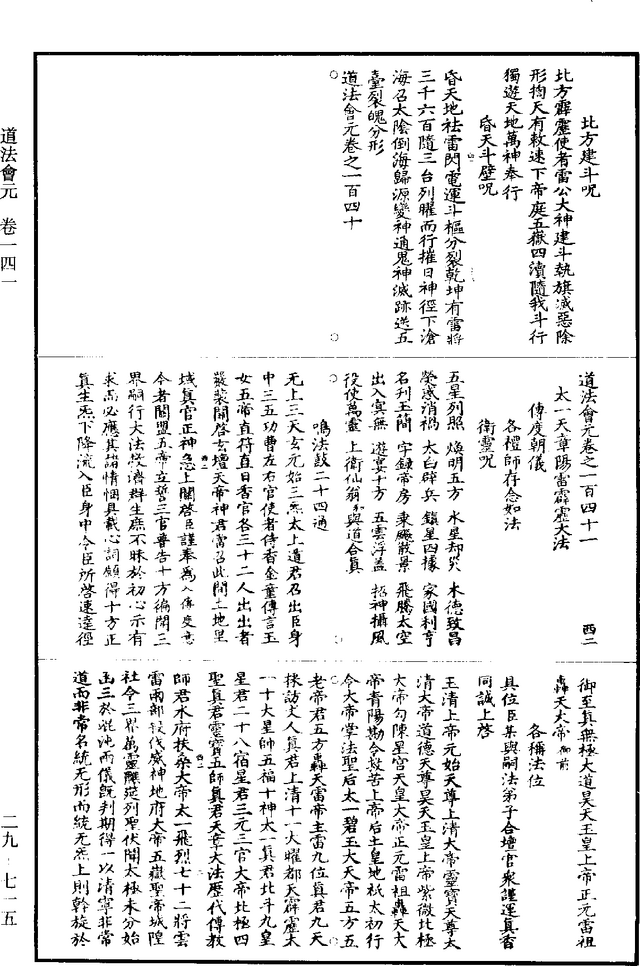 道法會元 卷一四一
二九—七一五
北方建斗呪
北方霹靂使者雷公大神建斗執旗滅惡除
形狥天有敕速下帝庭五嶽四瀆隨我斗行
獨遊天地萬神奉行
昏天斗壁呪
昏天地祛雷閃電運斗樞分裂乾坤有雷將
三千六百隨三台列曜而行摧日神徑下滄
海召太陰倒海歸源變神通鬼神滅跡送五
臺裂魄分形
道法會元卷之一百四十
道法會元卷之一百四十一 西二
太一天章陽雷霹靂大法
傳度朝儀
各禮師存念如法
衛靈呪
五星列照 煥明五方 水星却災 木德致昌
熒惑消禍 太白辟兵 鎮星四據 家國利亨
名刋玉簡 字錄帝房 乗飈散景 飛騰太空
出入冥無 遊宴十方 五雲浮蓋 招神攝風
役使萬靈 上衛仙翁 與道合真
鳴法鼓二十四通
无上三天玄元始三炁太上道君召出臣身
中三五功曹左右官使者侍香金童傳言玉
女五帝直符直日香官各三十二人出出者
嚴裝關啓玄壇天帝神君當召此間土地里
域真官正神急上關啓臣謹奉為入傳度意
今者關盟五帝立誓三官普告十方徧聞三
界嗣行大法救濟群生庶不昧於初心示有
求而必應其諸情悃具載心詞願得十方正
真生炁下降流入臣身中令臣所啓速達徑
御至真無極大道昊天玉皇上帝正元雷祖
轟天大帝御前
各稱法位
具位臣某與嗣法弟子合壇官衆謹運真香
同誠上啓
玉清上帝元始天尊上清大帝靈寶天尊太
清大帝道德天尊昊天玉皇上帝紫微北極
大帝勾陳星宮天皇大帝正元雷祖轟天大
帝青陽勘合救苦上帝后土皇地祇太初行
令大帝掌法聖后太一碧玉大天帝五方五
老帝君五方轟天雷帝主雷九位真君九天
採訪丈人真君上清十一大曜都天霹靂太
一十大星帥五福十神太一真君北斗九皇
星君二十八宿星君三元三官大帝北極四
聖真君靈寶五師真君天章大法歷代傳教
師君水府扶桑大帝太一飛烈七十二將雲
雷兩部役伐威神地府大帝五嶽聖帝城隍
社令三界萬靈麗筵列聖伏聞太極未分始
凾三於混沌兩儀旣判期得一以清寧非常
道而非常名統无形而統无炁上則斡旋於